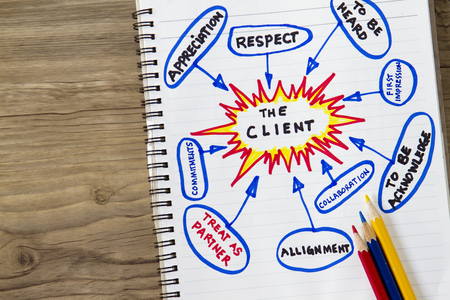 APPRECIATION
RESPECT
TO BE
HEARD
FIRST
IMPRESSION
THE
CLIENT
COMMITMENTS
COLLABORATION
TO BE
ACKNOWLEDGE
TREAT AS
PARTNER
ALLIGNMENT